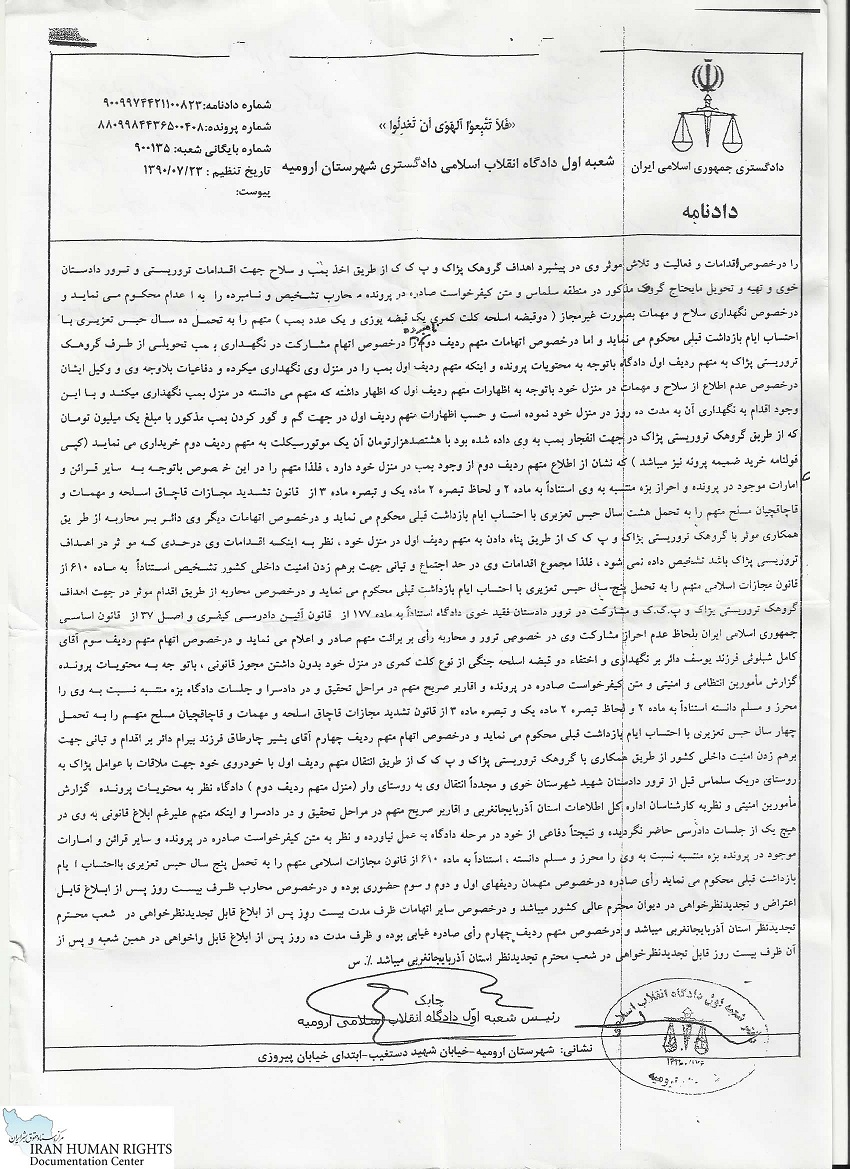 شماره دادنامه:۹۰۰۹۹۷۴۴۲۱۱۰۰۸۲۳
شماره پرونده:۸۸۰۹۹۸۴۴۳۶۵۰۰۴۰۸
شماره بایگانی شعبه: ۹۰۰۱۳۵
تاریخ تنظیم : ۱۳۹۰/۰۷/۲۳
پیوست:
«فَلاَ تَتَّبِعوُا اَلهَوَی أن تَعدِلُوا»
شعبه اول دادگاه انقلاب اسلامی دادگستری شهرستان ارومیه
دادگستری جمهوری اسلامی ایران
دادنامه
را درخصوص اقدامات و فعالیت و تلاش موثر وی در پیشبرد اهداف گروهک پژاک و پ ک ک از طریق اخذ بمب و سلاح جهت اقدامات تروریستی و ترور دادستان
خوی و تهیه و تحویل مایحتاج گروهک مذکور در منطقه سلماس و متن کیفرخواست صادره در پرونده محارب تشخیص و نامبرده را به اعدام محکوم می نماید و
درخصوص نگهداری سلاح و مهمات بصورت غیرمجاز ( دوقبضه اسلحه کلت کمری یک قبضه یوزی و یک عدد بمب ) متهم را به تحمل ده سال حبس تعزیری با
احتساب ایام بازداشت قبلی محکوم می نماید و اما درخصوص اتهامات متهم ردیف دوم نامبرده را درخصوص اتهام مشارکت در نگهداری بمب تحویلی از طرف گروهک
تروریستی پژاک به متهم ردیف اول دادگاه باتوجه به محتویات پرونده و اینکه متهم ردیف اول بمب را در منزل وی نگهداری میکرده و دفاعیات بلاوجه وی و وکیل ایشان
درخصوص عدم اطلاع از سلاح و مهمات در منزل خود باتوجه به اظهارات متهم ردیف اول که اظهار داشته که متهم می دانسته در منزل بمب نگهداری میکند و با این
وجود اقدام به نگهداری آن به مدت ده روز در منزل خود نموده است و حسب اظهارات متهم ردیف اول در جهت گم و گور کردن بمب مذکور با مبلغ یک میلیون تومان
که از طریق گروهک تروریستی پژاک در جهت انفجار بمب به وی داده شده بود با هشتصدهزارتومان آن یک موتورسیکلت به متهم ردیف دوم خریداری می نماید (کپی
قولنامه خرید ضمیمه پرونه نیز میباشد ) که نشان از اطلاع متهم ردیف دوم از وجود بمب در منزل خود دارد ، فلذا متهم را در این خصوص باتوجه به سایر قرائن و
امارات موجود در پرونده و احراز بزه منتسبه به وی استناداً به ماده ۲ و لحاظ تبصره ۲ ماده یک و تبصره ماده ۳ از قانون تشدید مجازات قاچاق اسلحه و مهمات و
قاچاقچیان مسلح متهم را به تحمل هشت سال حبس تعزیری با احتساب ایام بازداشت قبلی محکوم می نماید و درخصوص اتهامات دیگر وی دائر بر محاربه از طریق
همکاری موثر با گروهک تروریستی پژاک و پ ک ک از طریق پناه دادن به متهم ردیف اول در منزل خود ، نظر به اینکه اقدامات وی درحدی که موثر در اهداف
تروریستی پژاک باشد تشخیص داده نمی شود ، فلذا مجموع اقدامات وی در حد اجتماع و تبانی جهت برهم زدن امنیت داخلی کشور تشخیص استناداً به ماده ۶۱۰ از
قانون مجازات اسلامی متهم را به تحمل پنج سال حبس تعزیری با احتساب ایام بازداشت قبلی محکوم می نماید و درخصرص محاربه از طریق اقدام موثر در جهت اهداف
گروهک تروریستی پژاک و پ.ک.ک و مشارکت در ترور دادستان فقید خوی دادگاه استناداً به ماده ۱۷۷ از قانون آئین دادرسی کیفری و اصل ۳۷ از قانون اساسی
جمهوری اسلامی ایران بلحاظ عدم احراز مشارکت وی در خصوص ترور و محاربه رأی بر برائت متهم صادر و اعلام می نماید و درخصوص اتهام متهم ردیف سوم آقای
کامل شیلوئی فرزند یوسف دائر بر نگهداری و اختفاء دو قبضه اسلحه جنگی از نوع کلت کمری در منزل خود بدون داشتن مجوز قانونی ، باتوجه به محتویات پرونده
گزارش مأمورین انتظامی و امنیتی و متن کیفرخواست صادره در پرونده و اقاریر صریح متهم در مراحل تحقیق و در دادسرا و جلسات دادگاه بزه منتسبه نسبت به وی را
محرز و مسلم دانسته استناداً به ماده ۲ و لحاظ تبصره ۲ ماده یک و تبصره ماده ۳ از قانون تشدید مجازات قاچاق اسلحه و مهمات و قاچاقچیان مسلح متهم را به تحمل
چهار سال حبس تعزیری با احتساب ایام بازداشت قبلی محکوم می نماید و درخصوص اتهام متهم ردیف چهارم آقای بشیر چارطاق فرزند بیرام دائر بر اقدام و تبانی جهت
برهم زدن امنیت داخلی کشور از طریق همکاری با گروهک تروریستی پژاک و پ ک ک از طریق انتقال متهم ردیف اول با خودروی خود جهت ملاقات با عوامل پژاک به
روستای دریک سلماس قبل از ترور دادستان شهید شهرستان خوی و مجدداً انتقال وی به روستای وار (منزل متهم ردیف دوم ) دادگاه نظر به محتویات پرونده گزارش
مأمورین امنیتی و نظریه کارشناسان اداره کل اطلاعات استان آذربایجانغربی و اقاریر صریح متهم در مراحل تحقیق و در دادسرا و اینکه متهم علیرغم ابلاغ قانونی به وی در
هیچ یک از جلسات دادرسی حاضر نگردیده و نتیجتاً دفاعی از خود در مرحله دادگاه به عمل نیاورده و نظر به متن کیفرخواست صادره در پرونده و سایر قرائن و امارات
موجود در پرونده بزه منتسبه نسبت به وی را محرز و مسلم دانسته ، استناداً به ماده ۶۱۰ از قانون مجازات اسلامی متهم را به تحمل پنج سال حبس تعزیری بااحتساب ایام
بازداشت قبلی محکوم می نماید رأی صادره درخصوص متهمان ردیفهای اول و دوم و سوم حضوری بوده و درخصوص محارب ظرف بیست روز پس از ابلاغ قابل
اعتراض و تجدیدنظرخواهی در دیوان محترم عالی کشور میباشد و درخصوص سایر اتهامات ظرف مدت بیست روز پس از ابلاغ قابل تجدیدنظرخواهی در شعب محترم
تجدیدنظر استان آذربایجانغربی میباشد و درخصوص متهم ردیف چهارم رأی صادره غیابی بوده و ظرف مدت ده روز پس از ابلاغ قابل واخواهی در همین شعبه و پس از
آن ظرف بیست روز قابل تجدیدنظرخواهی در شعب محترم تجدیدنظر استان آذربایجانغربی میباشد ٪. س
چابک
رئیس شعبه اول دادگاه انقلاب اسلامی ارومیه
نشانی: شهرستان ارومیه-خیابان شهید دستغیب-ابتدای خیابان پیروزی
IRAN HUMAN RIGHTS
Documentation Center